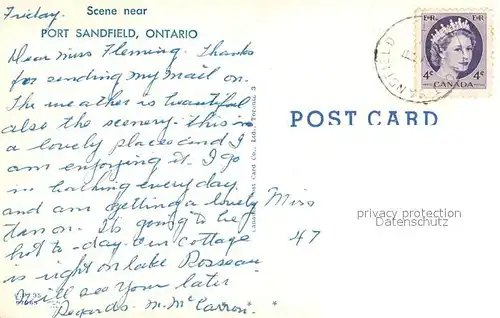 Friday.
Scene near
PORT SANDFIELD, ONTARIO
Dear Miss Fleming. Thanks
for sending my mail on.
The weather is beautiful
also the scenery. this is
a lovely place and I
am enjoying it. I go
in bathing every day
and am getting a lovely
tan on. Its going to be
hot to-day. our cottage
is right on lake Rosseau
will see your later
Regards. M. McCarron.
POST CARD
Miss
47
4¢ 4¢
CANADA
privacy protection
Datenschutz